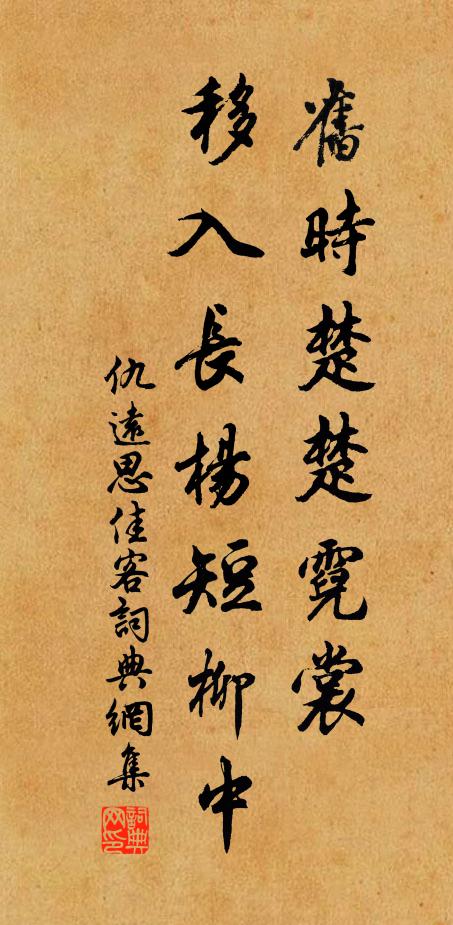 舊時楚楚霓裳
移入長楊短柳中
仇遠思佳客詞典網集
詞典网印